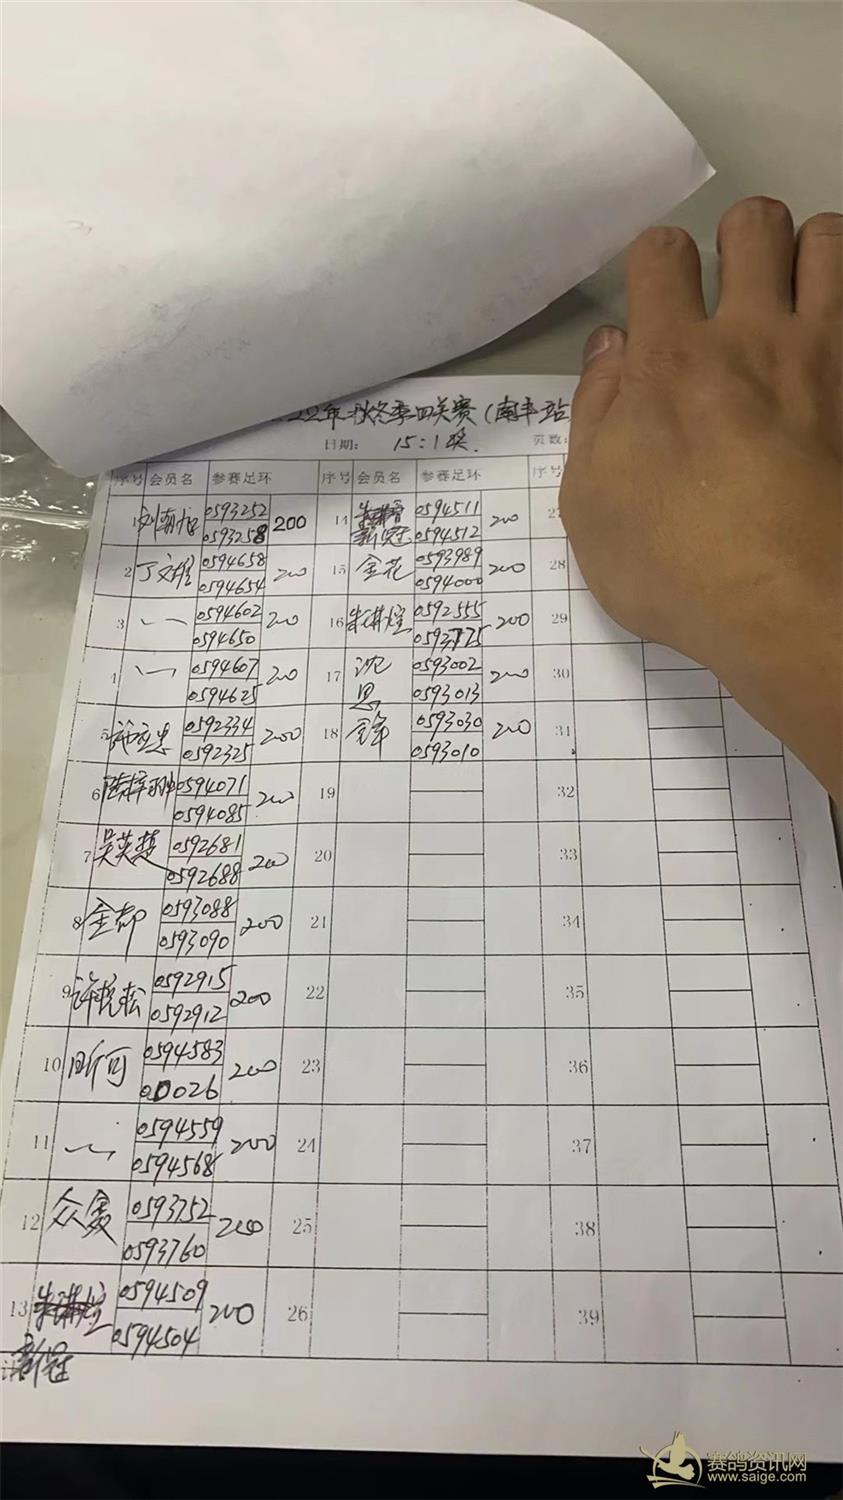 22年秋冬季四关赛(南丰站
日期: 15:1奖. 页数:
序号 会员名 参赛足环 序号 会员名 参赛足环 序号
1 0593252 200 14 新冠 0594511 200 27
0593258 0594512
2 丁文雄 0594658 200 15 金花 0593989 200 28
0594654 0594000
3 0594602 200 16 朱琪煌 0592555 200 29
0594650 0593775
4 0594607 200 17 沈 0593002 200 30
0594625 思 0593013
5 0592334 200 18 锋 0593030 200 31
0592325 0593010
6 0594071 200 19 32
0594085
7 吴英楚 0592681 200 20 33
0592688
8 金都 0593088 200 21 34
0593090
9 许晓松 0592915 200 22 35
0592912
10 昕可 0594583 200 23 36
00026
11 0594559 200 24 37
0594568
12 众赛 0593752 200 25 38
0593760
13 0594509 200 26 39
新冠 0594504
赛鸽资讯网
www.saige.com